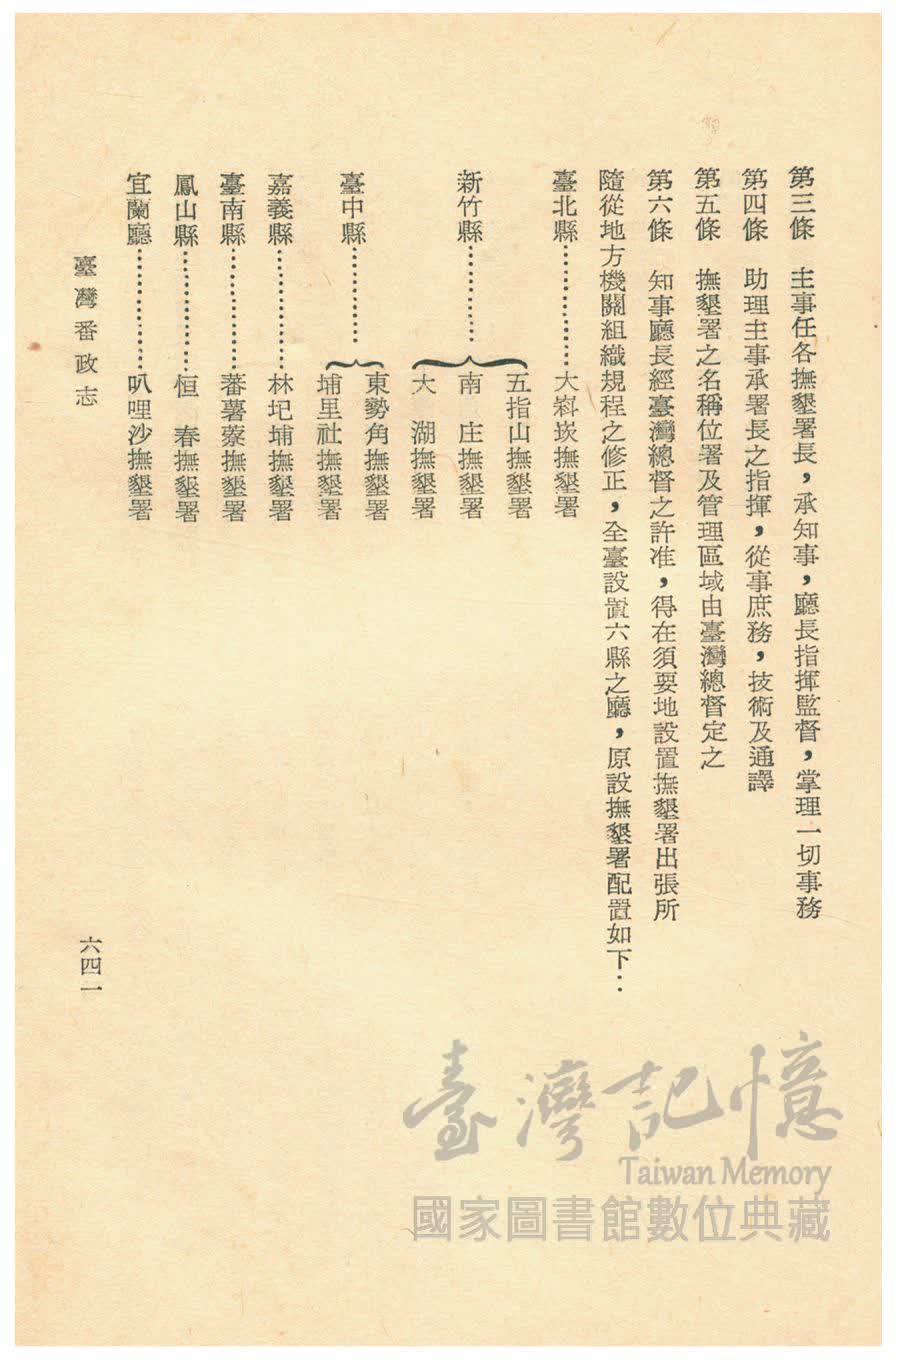 第三條　主事任各撫墾署長，承知事，廳長指揮監督，掌理一切事務
第四條　助理主事承署長之指揮，從事庶務，技術及通譯
第五條　撫墾署之名稱位署及管理區域由臺灣總督定之
第六條　知事廳長經臺灣總督之許准，得在須要地設置撫墾署出張所
隨從地方機關組織規程之修正，全臺設置六縣之廳，原設撫墾署配置如下：
臺北縣…………大嵙崁撫墾署
新竹縣…………
五指山撫墾署
南　庄撫墾署
大　湖撫墾署
臺中縣…………
東勢角撫墾署
埔里社撫墾署
嘉義縣…………林圯埔撫墾署
臺南縣…………蕃薯藔撫墾署
鳳山縣…………恒　春撫墾署
宜蘭廳…………叭哩沙撫墾署
臺灣番政志
六四一
臺灣記憶
Taiwan Memory
國家圖書館數位典藏